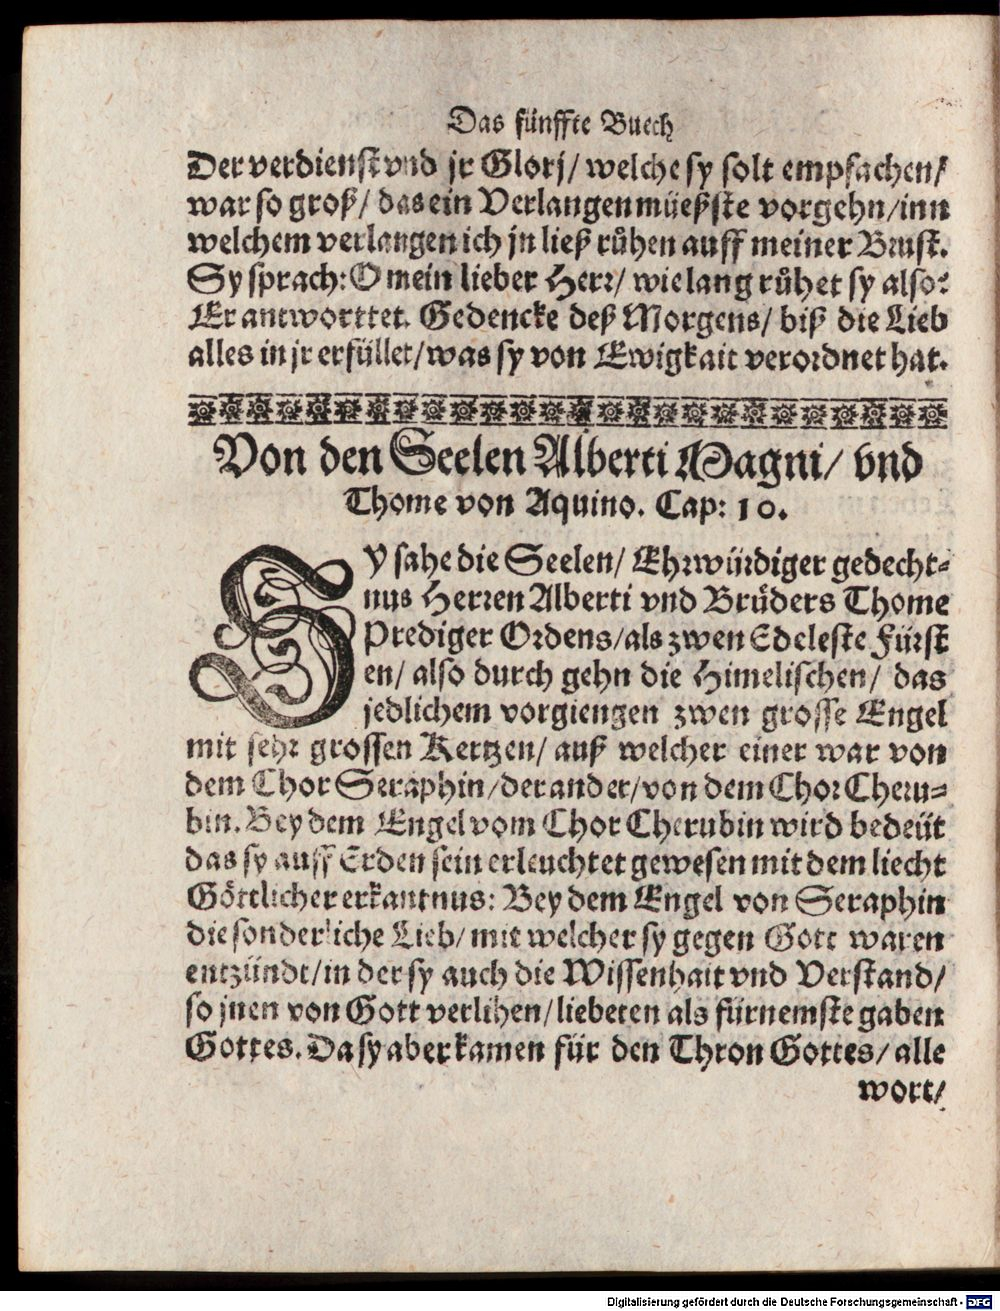 Das fünffte Buech
Der verdienst vnd jr Glorj/ welche sy solt empfachen/
war so groß/ das ein Verlangen müeßste vorgehn/ inn
welchem verlangen ich jn ließ růhen auff meiner Brust.
Sy sprach: O mein lieber Herr/ wie lang růhet sy also?
Er antworttet. Gedencke deß Morgens/ biß die Lieb
alles in jr erfüllet/ was sy von Ewigkait verordnet hat.
Von den Seelen Alberti Magni/ vnd
Thome von Aquino. Cap: 10.
SY sahe die Seelen/ Ehrwürdiger gedecht-
nus Herren Alberti vnd Brůders Thome
Prediger Ordens/ als zwen Edeleste Fürst
en/ also durch gehn die Himelischen/ das
jedlichem vorgiengen zwen grosse Engel
mit sehr grossen Kertzen/ auß welcher einer war von
dem Chor Seraphin/ der ander/ von dem Chor Cheru-
bin. Bey dem Engel vom Chor Cherubin wird bedeüt
das sy auff Erden sein erleuchtet gewesen mit dem liecht
Göttlicher erkantnus: Bey dem Engel von Seraphin
die sonderliche Lieb/ mit welcher sy gegen Gott waren
entzündt/ in der sy auch die Wissenhait vnd Verstand/
so jnen von Gott verlihen/ liebeten als fürnemste gaben
Gottes. Da sy aber kamen für den Thron Gottes/ alle
wort/
Digitalisierung gefördert durch die Deutsche Forschungsgemeinschaft - DFG